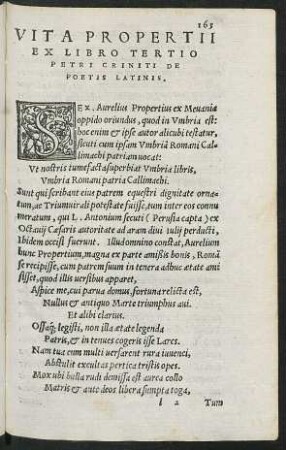 163
VITA PROPERTII
EX LIBRO TERTIO
PETRI CRINITI DE
POETIS LATINIS.
SEX. Aurelius Propertius ex Meuania
oppido oriundus, quod in Vmbria est:
hoc enim & ipse autor alicubi testatur,
sicuti cum ipsam Vmbriā Romani Cal-
limachi patriam uocat:
Vt nostris tumefacta superbiat Vmbria libris,
Vmbria Romani patria Callimachi.
Sunt qui scribant eius patrem equestri dignitate orna-
tum, ac Triumuirali potestate fuisse, tum inter eos connu
meratum, qui L. Antonium secuti (Perusia capta) ex
Octauij Cæsaris autoritate ad aram diui iulij perducti,
Ibidem occisi fuerunt. Illud omnino constat, Aurelium
hunc Propertium, magna ex parte amissis bonis, Romā
se recipisse, cum patrem suum in tenera adhuc ætate ami
sisset, quod illis uersibus apparet,
Aspice me, cui parua domus, fortuna relicta est,
Nullus & antiquo Marte triumphus aui.
Et alibi clarius.
Ossaq; legisti, non illa ætate legenda
Patris, & in tenues cogeris ipse Lares.
Nam tua cum multi uersarent rura iuuenci,
Abstulit excultas pertica tristis opes.
Mox ubi bulla rudi demissa est aurea collo
Matris & ante deos libera sumpta toga,
l a Tum